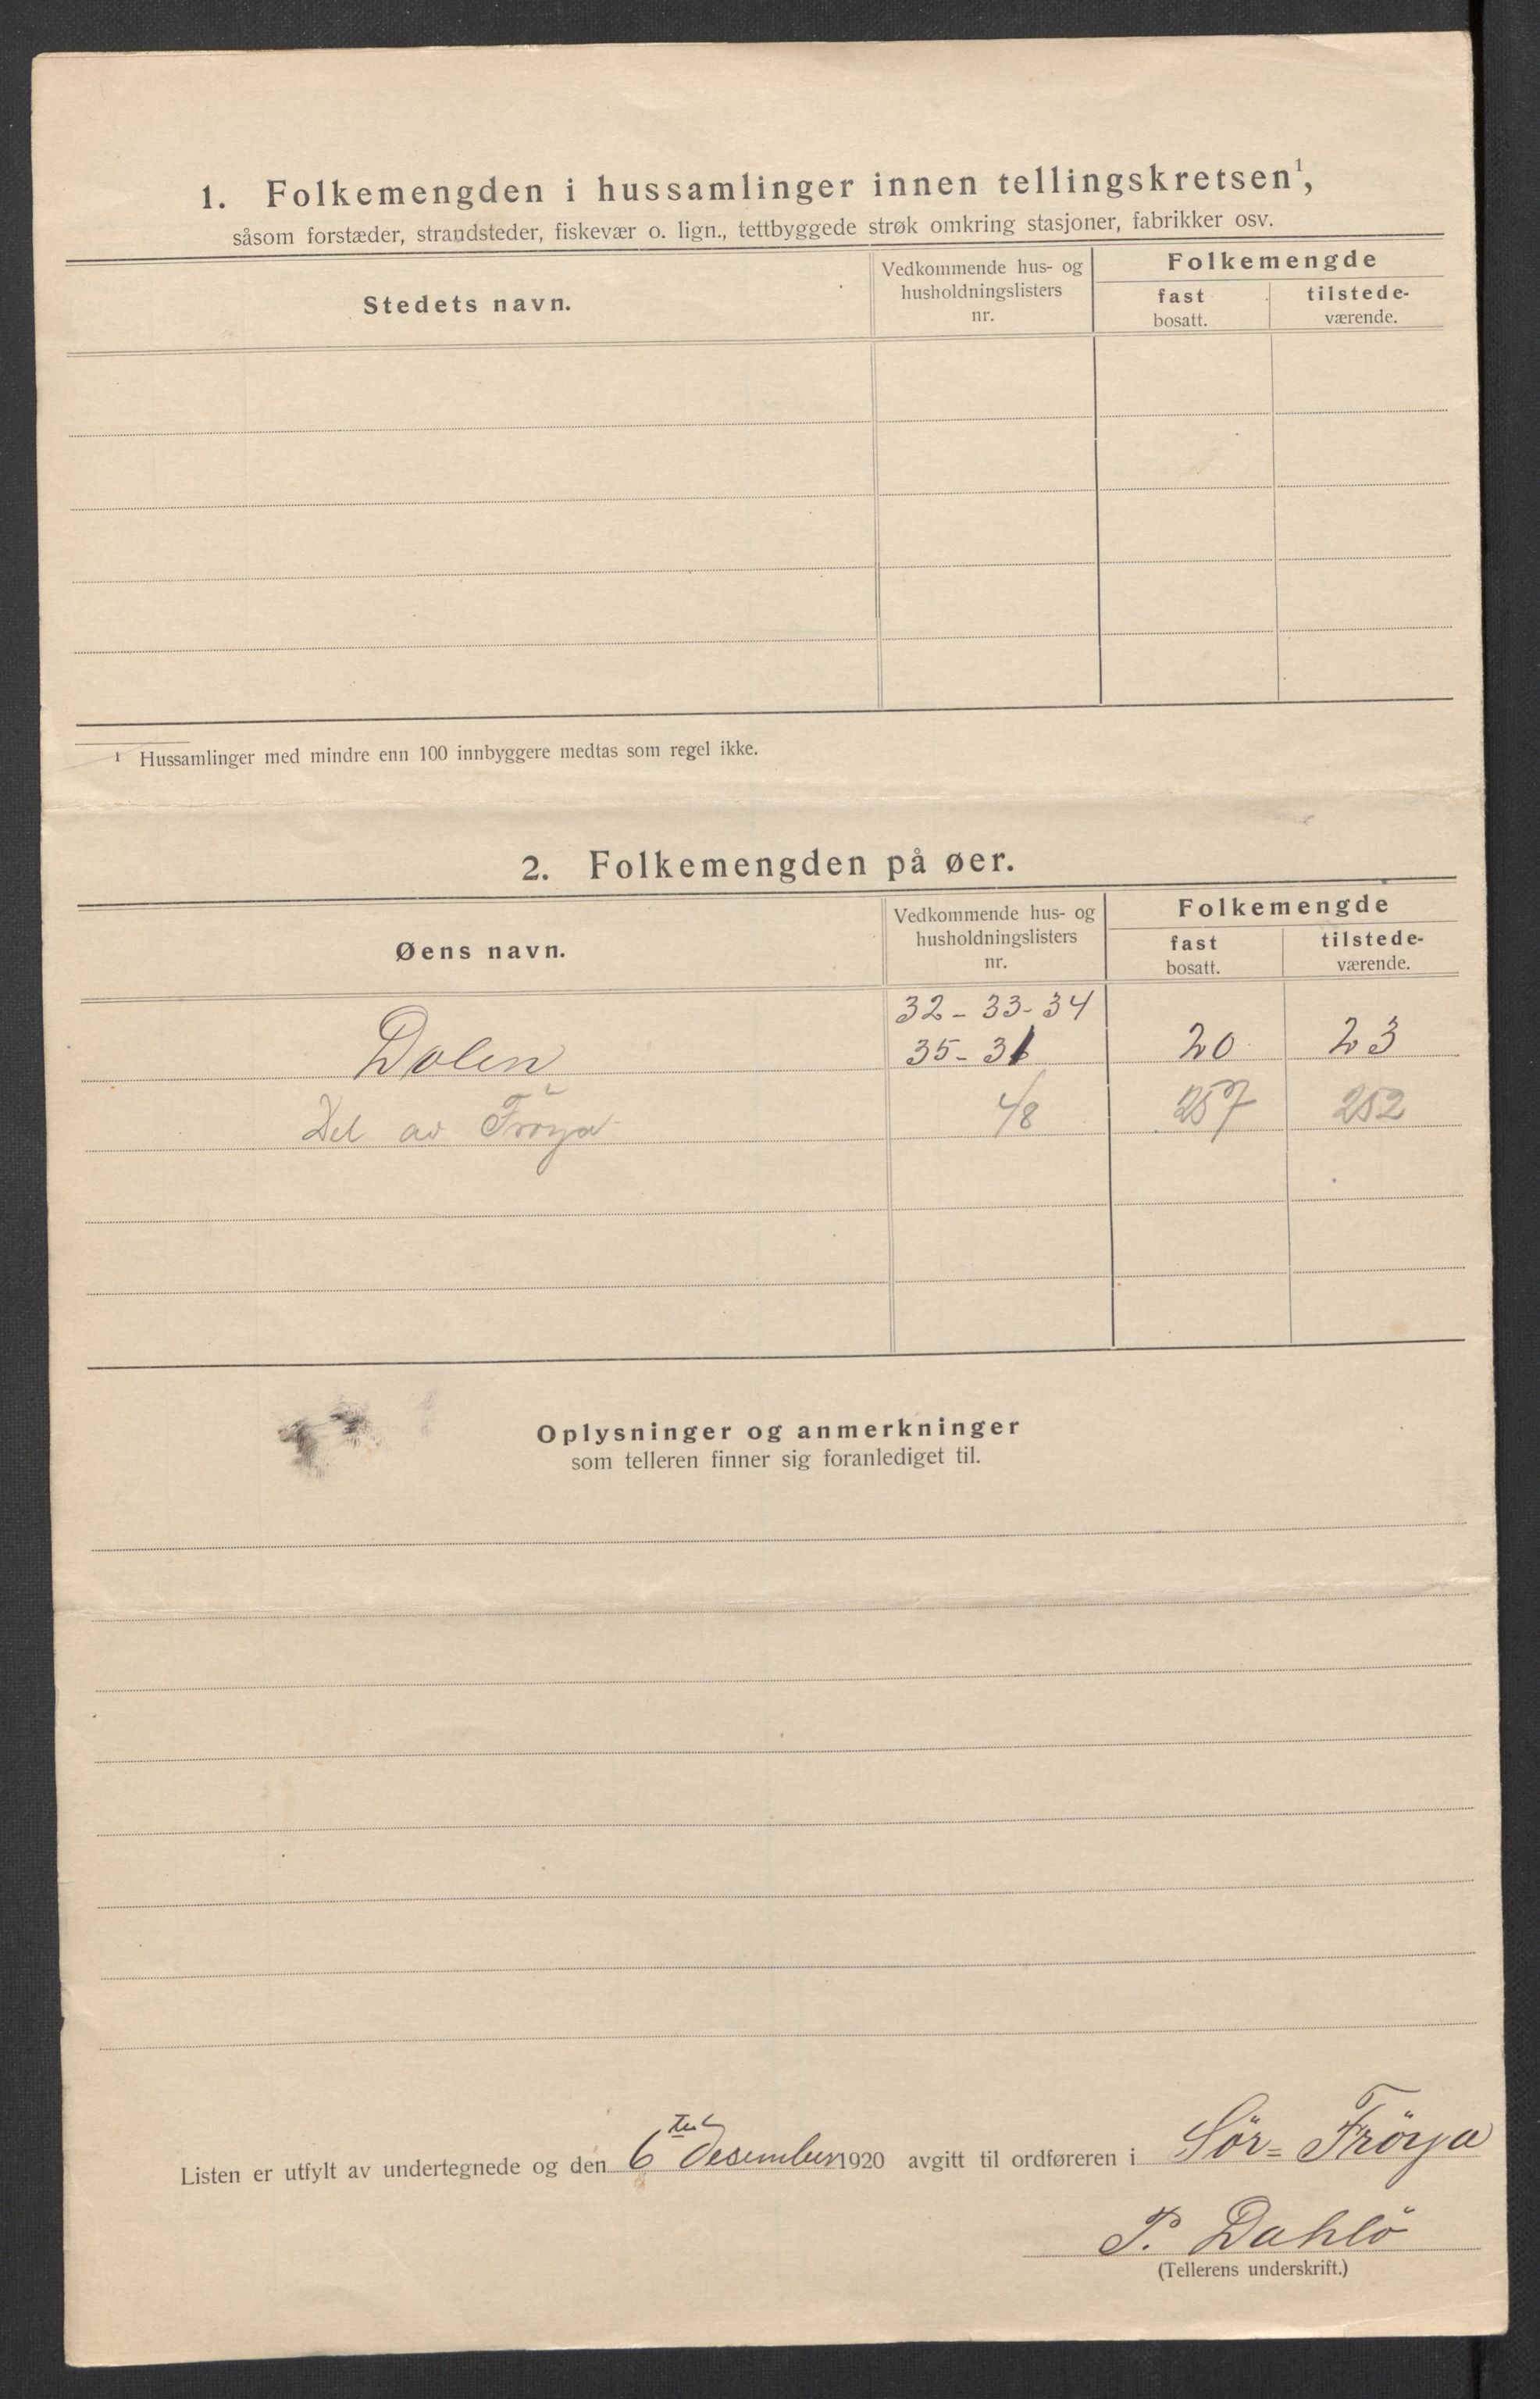 1. Folkemengden i hussamlinger innen tellingskretsen¹,
såsom forstæder, strandsteder, fiskevær o. lign., tettbyggede strøk omkring stasjoner, fabrikker osv.
Stedets navn.
Vedkommende hus- og
husholdningslisters
nr.
Folkemengde
fast
bosatt.
tilstede-
værende.
¹ Hussamlinger med mindre enn 100 innbyggere medtas som regel ikke.
2. Folkemengden på øer.
Øens navn.
Vedkommende hus- og
husholdningslisters
nr.
Folkemengde
fast
bosatt.
tilstede-
værende.
32 - 33 - 34
Dolen 35 - 20 23
Del av Fröya 257 252
Oplysninger og anmerkninger
som telleren finner sig foranlediget til.
Listen er utfylt av undertegnede og den 6 desember 1920 avgitt til ordføreren i Sör= Fröya
P. Dahlö
(Tellerens underskrift.)